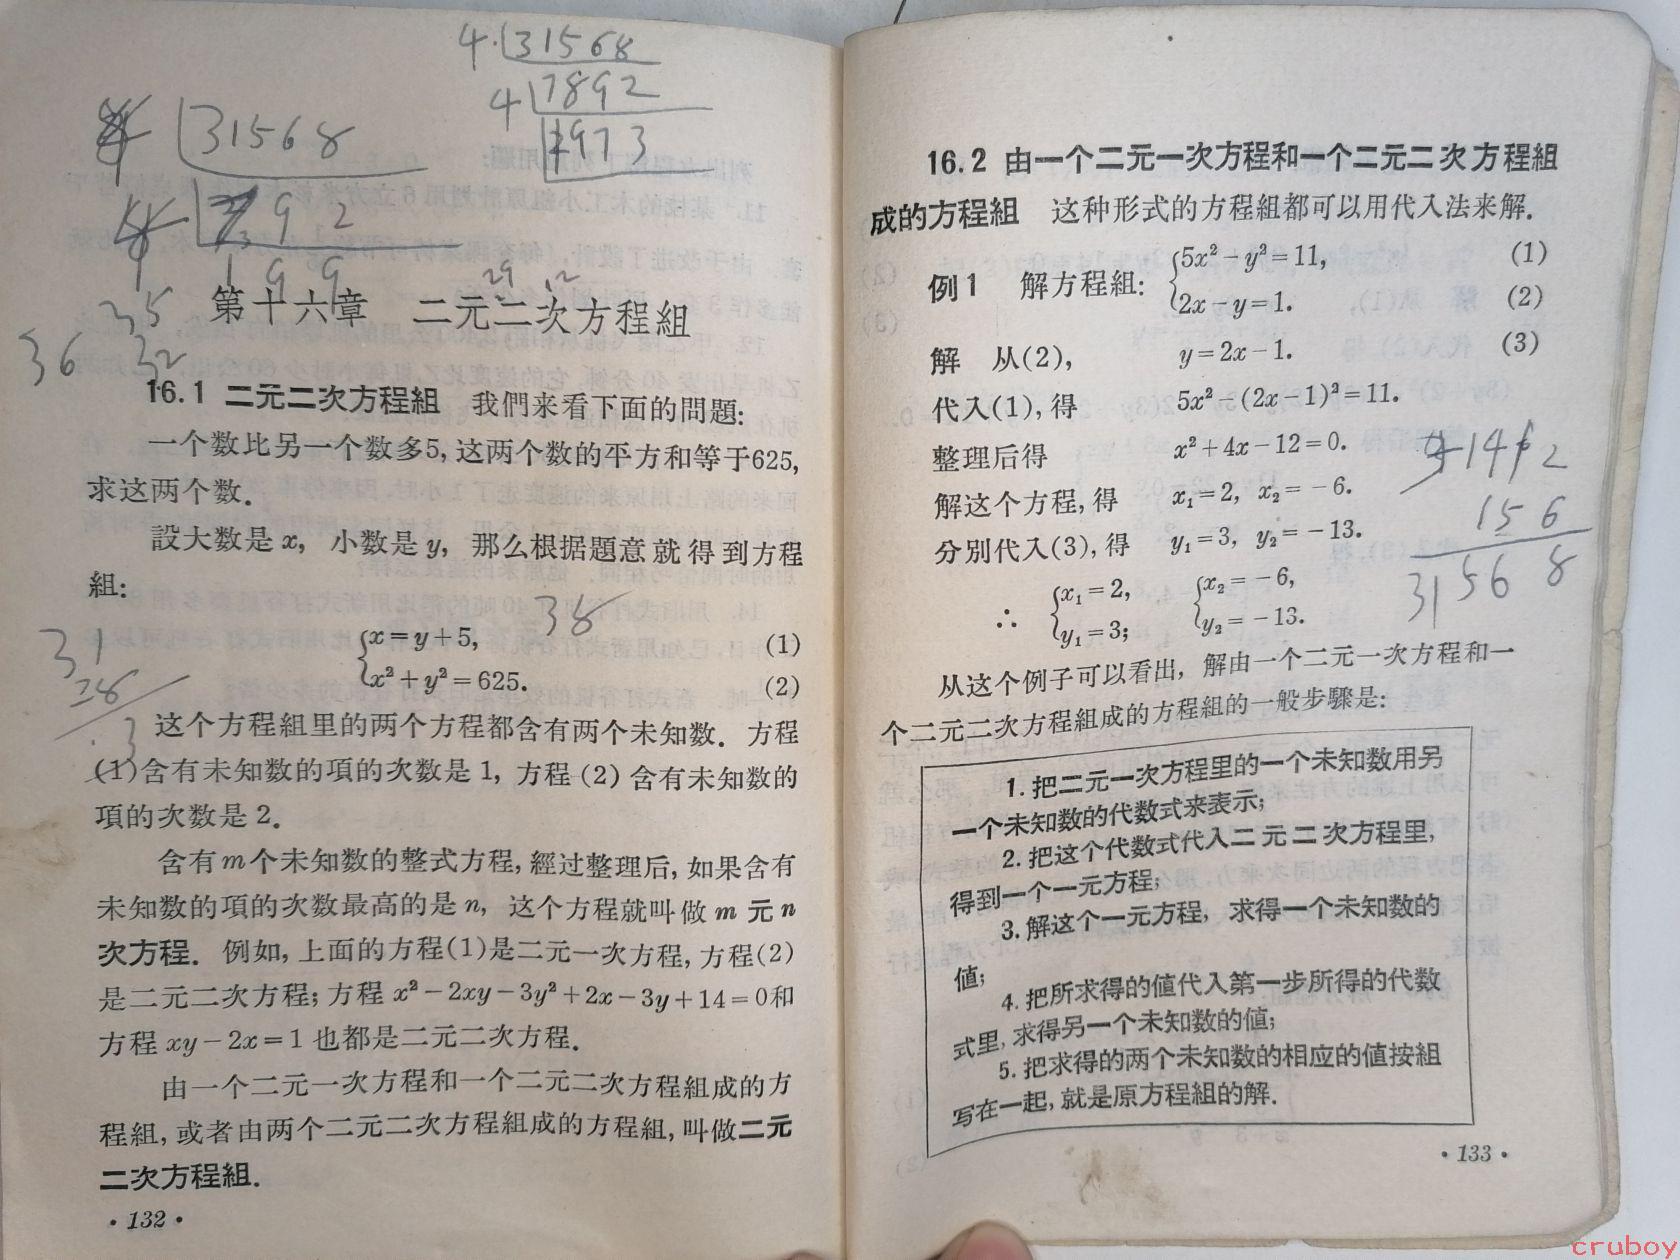 4 31568
4 7892
1973
31568
7 9 2
1 9 9
29 12
35
36 32
第十六章 二元二次方程組
16.1 二元二次方程組 我們来看下面的問題:
一个数比另一个数多5, 这两个数的平方和等于625,
求这两个数.
設大数是 x, 小数是 y, 那么根据題意就得到方程
組:
38
x=y+5, (1)
x²+y²=625. (2)
31
28
3
这个方程組里的两个方程都含有两个未知数. 方程
(1)含有未知数的項的次数是 1, 方程 (2) 含有未知数的
項的次数是 2.
含有 m 个未知数的整式方程, 經过整理后, 如果含有
未知数的項的次数最高的是 n, 这个方程就叫做 m 元 n
次方程. 例如, 上面的方程(1)是二元一次方程, 方程(2)
是二元二次方程; 方程 x²-2xy-3y²+2x-3y+14=0和
方程 xy-2x=1 也都是二元二次方程.
由一个二元一次方程和一个二元二次方程組成的方
程組, 或者由两个二元二次方程組成的方程組, 叫做二元
二次方程組.
• 132 •
16.2 由一个二元一次方程和一个二元二次方程組
成的方程組 这种形式的方程組都可以用代入法来解.
例1 解方程組: 5x²-y²=11, (1)
2x-y=1. (2)
解 从(2), y=2x-1. (3)
代入(1), 得 5x²-(2x-1)²=11.
整理后得 x²+4x-12=0.
解这个方程, 得 x₁=2, x₂=-6.
分別代入(3), 得 y₁=3, y₂=-13.
∴ x₁=2, x₂=-6,
y₁=3; y₂=-13.
156
31568
从这个例子可以看出, 解由一个二元一次方程和一
个二元二次方程組成的方程組的一般步驟是:
1. 把二元一次方程里的一个未知数用另
一个未知数的代数式来表示;
2. 把这个代数式代入二元二次方程里,
得到一个一元方程;
3. 解这个一元方程, 求得一个未知数的
値;
4. 把所求得的値代入第一步所得的代数
式里, 求得另一个未知数的値;
5. 把求得的两个未知数的相应的値按組
写在一起, 就是原方程組的解.
• 133 •
cruboy